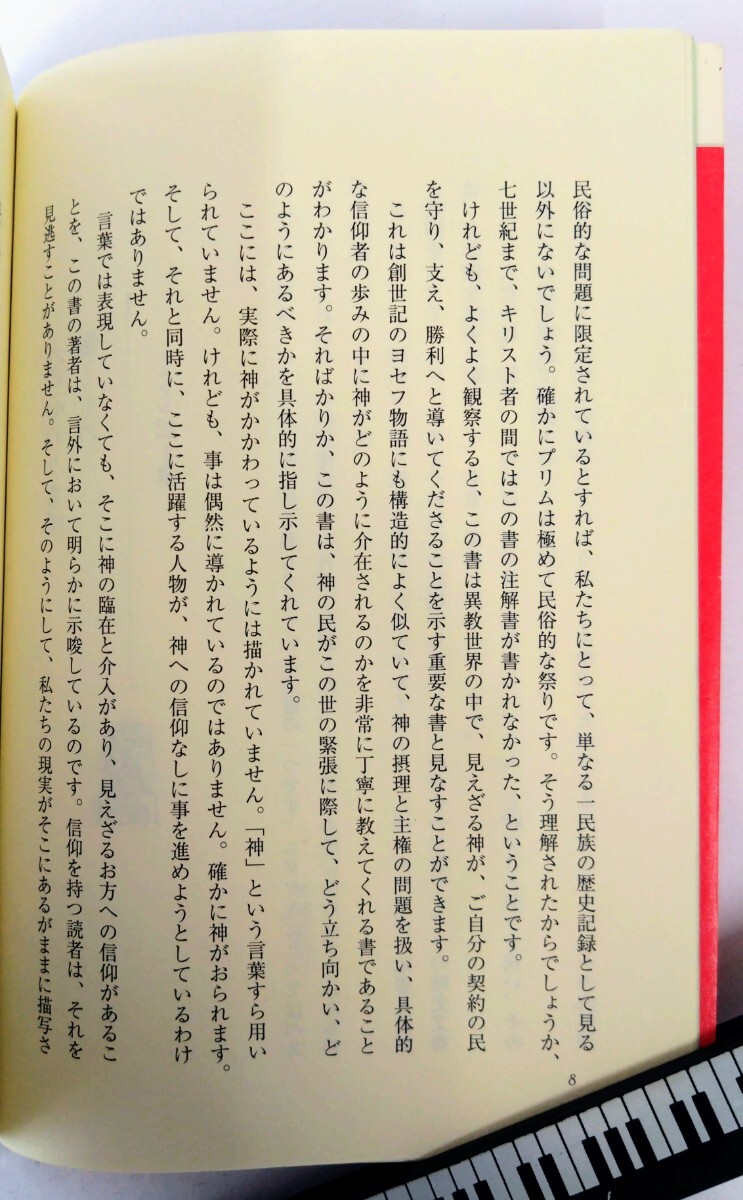 民俗的な問題に限定されているとすれば、私たちにとって、単なる一民族の歴史記録として見る
以外にないでしょう。確かにプリムは極めて民俗的な祭りです。そう理解されたからでしょうか、
七世紀まで、キリスト者の間ではこの書の注解書が書かれなかった、ということです。
けれども、よくよく観察すると、この書は異教世界の中で、見えざる神が、ご自分の契約の民
を守り、支え、勝利へと導いてくださることを示す重要な書と見なすことができます。
これは創世記のヨセフ物語にも構造的によく似ていて、神の摂理と主権の問題を扱い、具体的
な信仰者の歩みの中に神がどのように介在されるのかを非常に丁寧に教えてくれる書であること
がわかります。そればかりか、この書は、神の民がこの世の緊張に際して、どう立ち向かい、ど
のようにあるべきかを具体的に指し示してくれています。
ここには、実際に神がかかわっているようには描かれていません。「神」という言葉すら用い
られていません。けれども、事は偶然に導かれているのではありません。確かに神がおられます。
そして、それと同時に、ここに活躍する人物が、神への信仰なしに事を進めようとしているわけ
ではありません。
言葉では表現していなくても、そこに神の臨在と介入があり、見えざるお方への信仰があるこ
とを、この書の著者は、言外において明らかに示唆しているのです。信仰を持つ読者は、それを
見逃すことがありません。そして、そのようにして、私たちの現実がそこにあるがままに描写さ
8